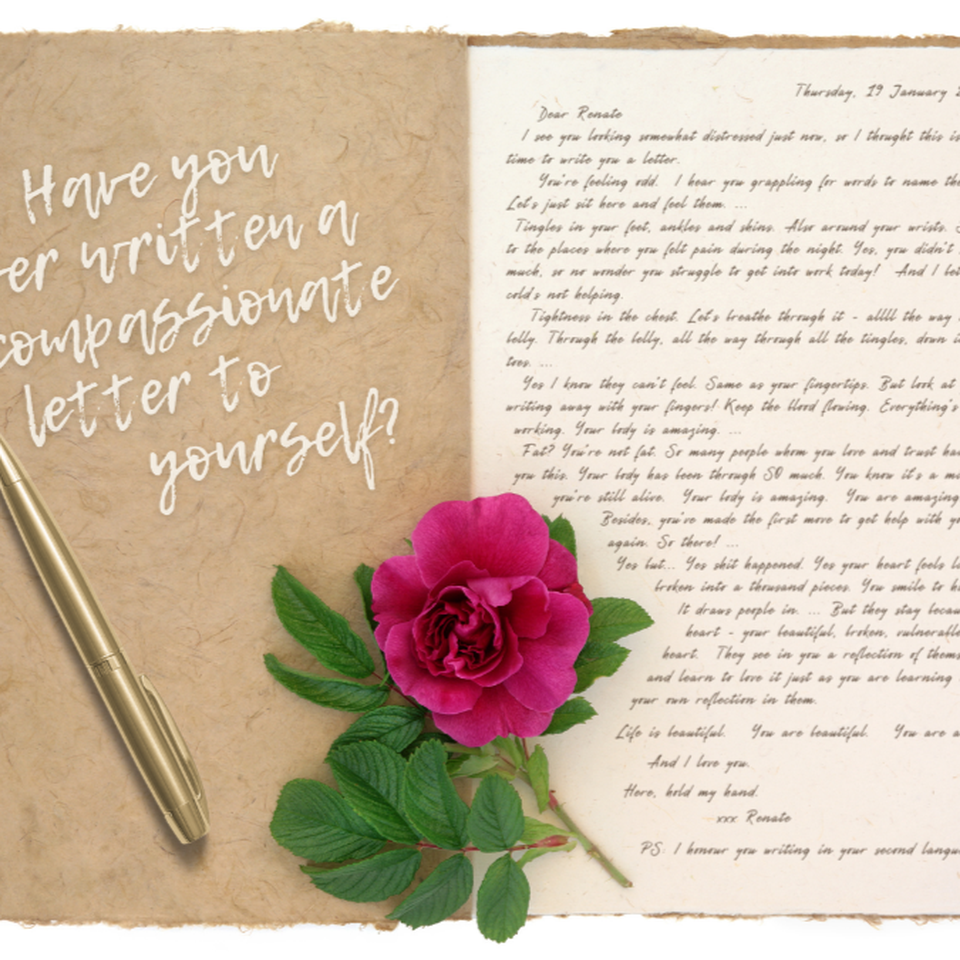 Have you
er written a
compassionate
letter to
yourself?
Thursday, 19 January
Dear Renate
I see you looking somewhat distressed just now, so I thought this is
time to write you a letter.
You're feeling odd. I hear you grappling for words to name the
Let's just sit here and feel them. ...
Tingles in your feet, ankles and shins. Also around your wrists.
to the places where you felt pain during the night. Yes, you didn't
much, so no wonder you struggle to get into work today! And I
cold's not helping.
Tightness in the chest. Let's breathe through it - allll the way
belly. Through the belly, all the way through all the tingles, down
toes. ...
Yes I know they can't feel. Same as your fingertips. But look at
writing away with your fingers! Keep the blood flowing. Everything's
working. Your body is amazing. ...
Fat? You're not fat. So many people whom you love and trust
you this. Your body has been through SO much. You know it's a
you're still alive. Your body is amazing. You are amazing
Besides, you've made the first move to get help with
again. So there! ...
Yes but... Yes shit happened. Yes your heart feels
broken into a thousand pieces. You smile to
It draws people in. ... But they stay
heart - your beautiful, broken,
heart. They see in you a reflection of
and learn to love it just as you are learning
your own reflection in them.
Life is beautiful. You are beautiful. You are
And I love you.
Here, hold my hand.
xxx Renate
PS: I honour you writing in your second